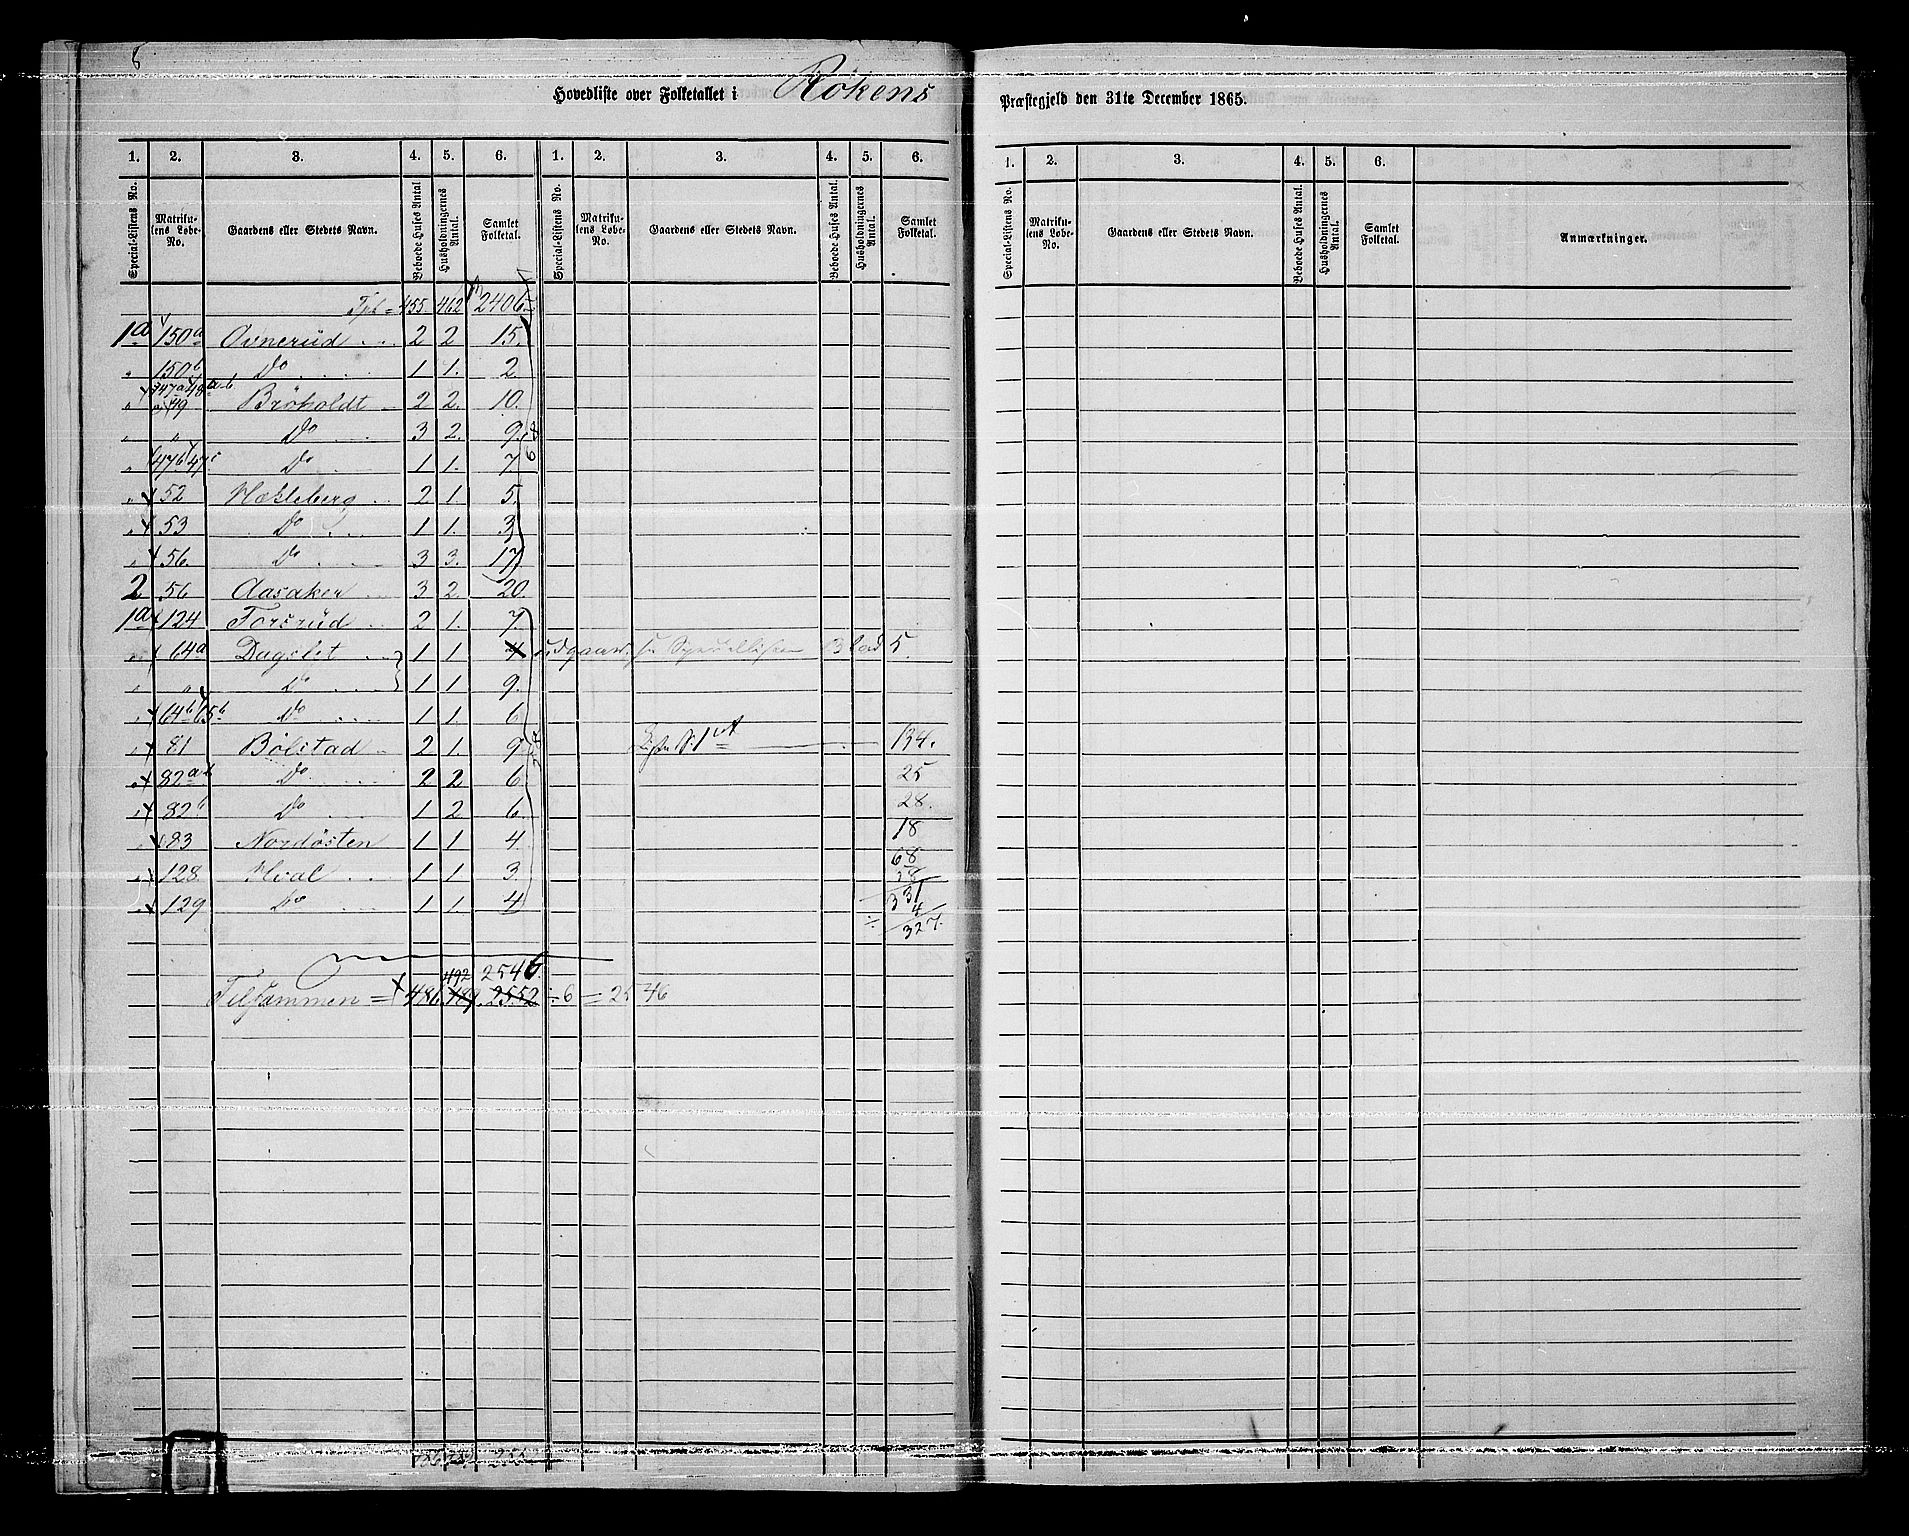 8
Hovedliste over Folketallet i Rökens Præstegjeld den 31te December 1865.
1. 2. 3. 4. 5. 6. 1. 2. 3. 4. 5. 6. 1. 2. 3. 4. 5. 6.
Special-Listens No. Matrikulens Løbe-No. Gaardens eller Stedets Navn. Beboede Huses Antal Husholdningernes Antal. Samlet Folketal. Special-Listens No. Matrikulens Løbe-No. Gaardens eller Stedets Navn. Beboede Huses Antal. Husholdningernes Antal. Samlet Folketal. Special-Listens No. Matrikulens Løbe-No. Gaardens eller Stedets Navn. Beboede Huses Antal. Husholdningernes Antal. Samlet Folketal. Anmærkninger.
455. 462 2406
1a 150a Ovnerud 2 2 15.
" 150b Do 1 1. 2
" 47a 48a-b 49 Bröholdt 2 2. 10.
" " Do 3 2. 9.
" 47b 47c Do 1 1. 7. 68
" 52 Hækleberg 2 1. 5.
" 53 Do 1 1. 3
" 56. Do 3 3. 17
2 56 Aasaker 3 2. 20.
1a 124 Forsrud 2 1. 7.
" 64a Dagslet 1 1 4 udgaar. Blad 5.
" " Do 1 1 9.
" 64b 65b Do 1 1. 6
" 81 Bølstad 2 1. 9 134.
" 82a-b Do 2 2 6 25
" 82c Do 1 2 6. 28.
" 83 Nordösten 1 1 4 18
68
" 128. Hval 1 1 3. 58
" 129 Do 1 1. 4 331
4
÷ 327.
492 2546.
Tilsammen = 486. 489. 2552 ÷ 6 = 2546